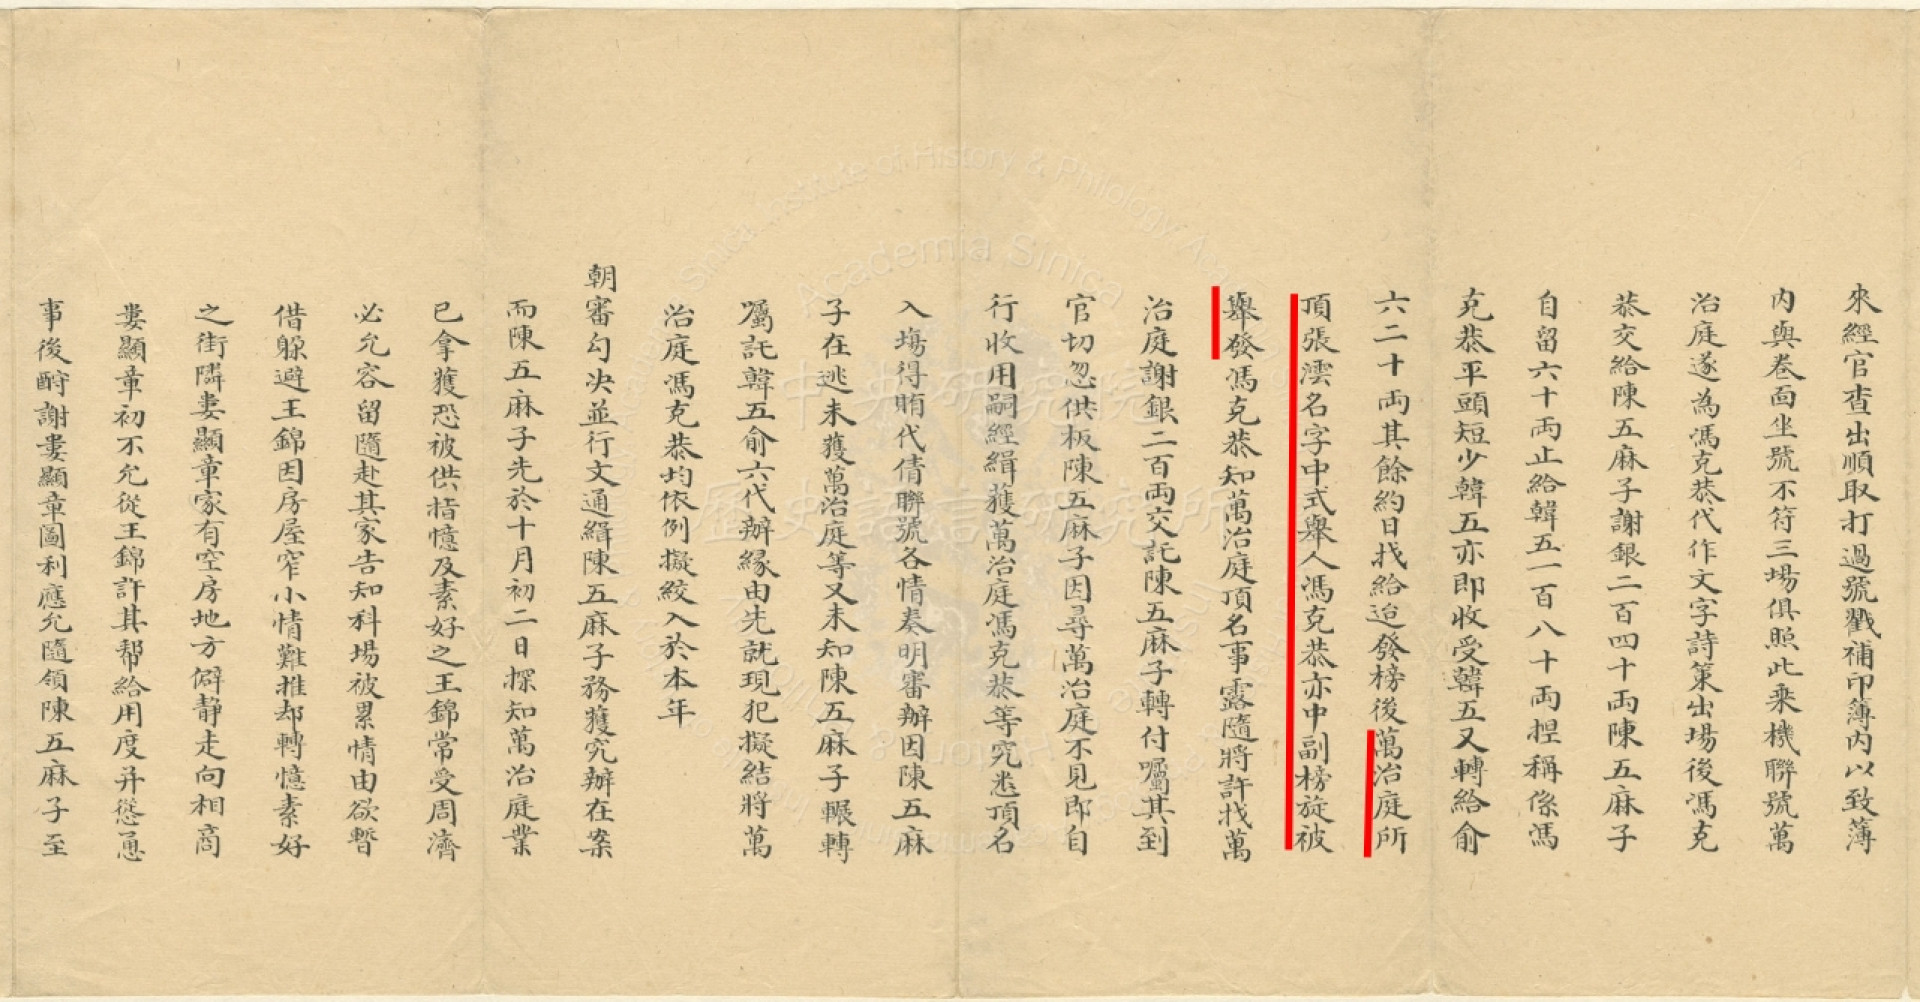 來經官查出順取打過號戳補印簿内以致簿
内與卷面坐號不符三場俱照此乘機聯號萬
治庭遂為馮克恭代作文字詩策出場後馮克
恭交給陳五麻子謝銀二百四十両陳五麻子
自留六十両止給韓五一百八十両揑稱係馮
克恭平頭短少韓五亦即收受韓五又轉給俞
六二十両其餘約日找給迨發榜後萬治庭所
頂張澐名字中式舉人馮克恭亦中副榜旋被
舉發馮克恭知萬治庭頂名事露隨將許找萬
治庭謝銀二百両交託陳五麻子轉付囑其到
官切忽供扳陳五麻子因尋萬治庭不見即自
行收用嗣經緝獲萬治庭馮克恭等究悉頂名
入塲得賄代倩聯號各情奏明審辦因陳五麻
子在逃未獲萬治庭等又未知陳五麻子輾轉
囑託韓五俞六代辦緣由先就現犯擬結將萬
治庭馮克恭均依例擬絞入於本年
朝審勾决並行文通緝陳五麻子務獲究辦在案
而陳五麻子先於十月初二日探知萬治庭業
已拿獲恐被供指憶及素好之王錦常受周濟
必允容留隨赴其家告知科場被累情由欲暫
借躲避王錦因房屋窄小情難推却轉憶素好
之街隣婁顯章家有空房地方僻静走向相商
婁顯章初不允從王錦許其幫給用度并慫恿
事後酧謝婁顯章圖利應允隨領陳五麻子至
中央研究院
歷史語言研究所
Academia Sinica